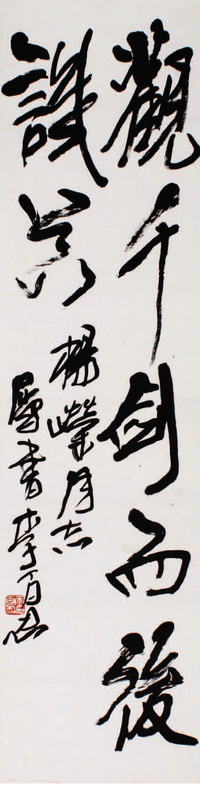 觀千劍而後
識器
楊榮同志
屬書李百忍